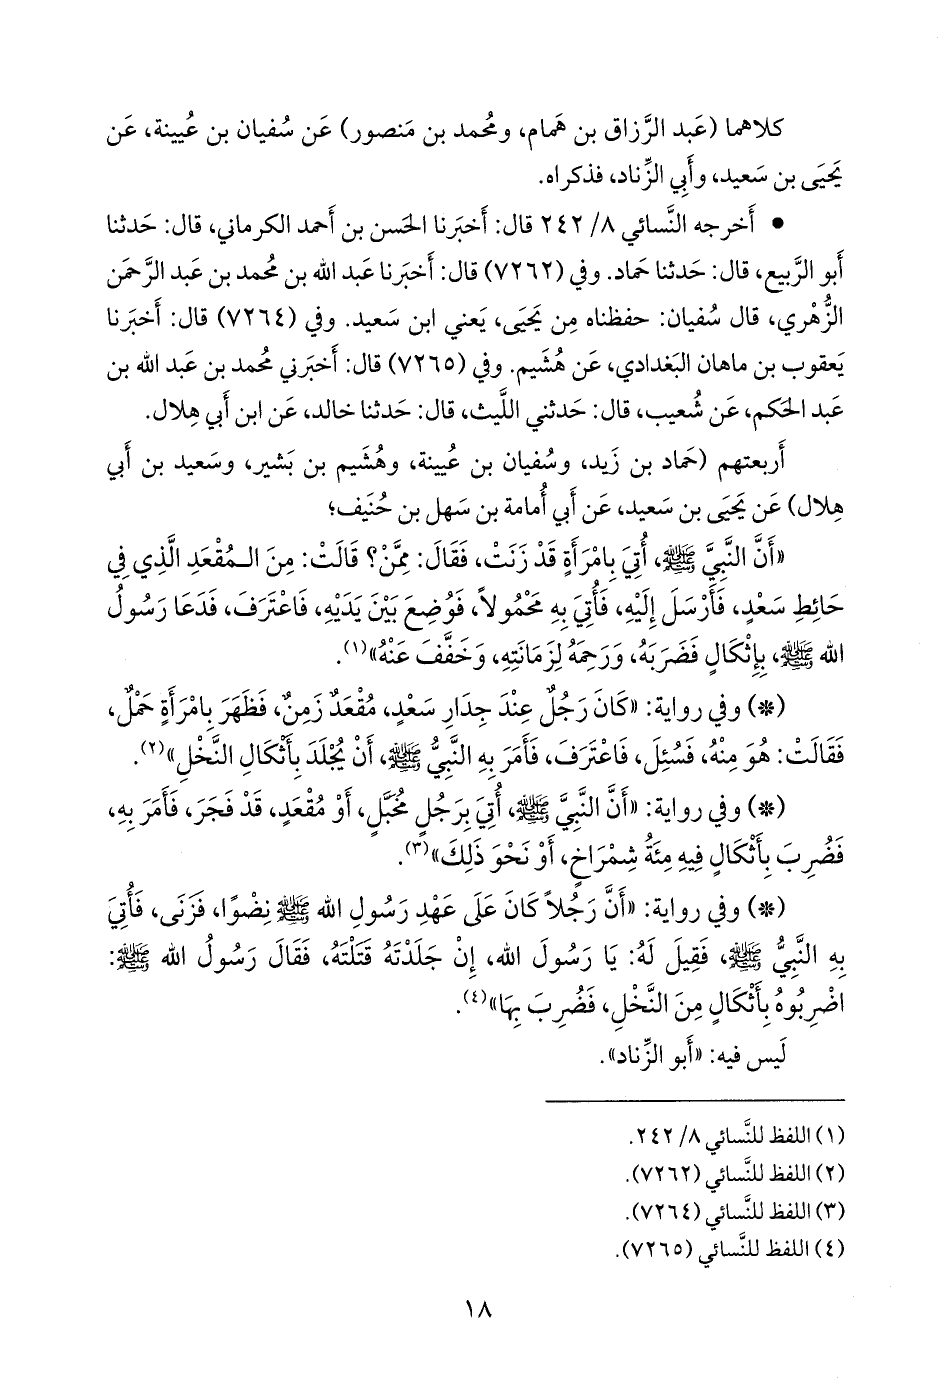 كلاهما (عَبد الرَّزاق بن هَمام، ومُحمد بن مَنصور) عَن سُفيان بن عُيينة، عَن
يَحيَى بن سَعيد، وأَبي الزِّناد، فذكراه.
• أَخرجه النَّسائي ٨/ ٢٤٢ قال: أَخبَرنا الحَسن بن أَحمد الكرماني، قال: حَدثنا
أَبو الرَّبيع، قال: حَدثنا حَماد. وفي (٧٢٦٢) قال: أَخبَرنا عَبد الله بن مُحمد بن عَبد الرَّحمَن
الزُّهْري، قال سُفيان: حفظناه مِن يَحيَى، يَعني ابن سَعيد. وفي (٧٢٦٤) قال: أَخبَرنا
يَعقوب بن ماهان البَغدادي، عَن هُشَيم. وفي (٧٢٦٥) قال: أَخبَرني مُحمد بن عَبد الله بن
عَبد الحَكم، عَن شُعيب، قال: حَدثني اللَّيث، قال: حَدثنا خالد، عَن ابن أَبي هِلال.
أَربعتهم (حَماد بن زَيد، وسُفيان بن عُيينة، وهُشَيم بن بَشير، وسَعيد بن أَبي
هِلال) عَن يَحيَى بن سَعيد، عَن أَبي أُمامة بن سَهل بن حُنَيف؛
«أَنَّ النَّبِيَّ ﷺ، أُتِيَ بِامْرَأَةٍ قَدْ زَنَتْ، فَقَالَ: مِمَّنْ؟ قَالَتْ: مِنَ الـمُقْعَدِ الَّذِي فِي
حَائِطِ سَعْدٍ، فَأَرْسَلَ إِلَيْهِ، فَأُتِيَ بِهِ مَحْمُولاً، فَوُضِعَ بَيْنَ يَدَيْهِ، فَاعْتَرَفَ، فَدَعَا رَسُولُ
الله ﷺ، بِإِثْكَالٍ فَضَرَبَهُ، وَرَحِمَهُ لِزَمَانَتِهِ، وَخَفَّفَ عَنْهُ»(١).
(*) وفي رواية: «كَانَ رَجُلٌ عِنْدَ جِدَارِ سَعْدٍ، مُقْعَدٌ زَمِنٌ، فَظَهَرَ بِامْرَأَةٍ حَمْلٌ،
فَقَالَتْ: هُوَ مِنْهُ، فَسُئِلَ، فَاعْتَرَفَ، فَأَمَرَ بِهِ النَّبِيُّ ﷺ، أَنْ يُجْلَدَ بِأَثْكَالِ النَّخْلِ»(٢).
(*) وفي رواية: «أَنَّ النَّبِيَّ ﷺ، أُتِيَ بِرَجُلٍ مُخَبَّلٍ، أَوْ مُقْعَدٍ، قَدْ فَجَرَ، فَأَمَرَ بِهِ،
فَضُرِبَ بِأَثْكَالٍ فِيهِ مِئَةُ شِمْرَاخٍ، أَوْ نَحْوَ ذَلِكَ»(٣).
(*) وفي رواية: «أَنَّ رَجُلاً كَانَ عَلَى عَهْدِ رَسُولِ الله ﷺ نِضْوًا، فَزَنَى، فَأُتِيَ
بِهِ النَّبِيُّ ﷺ، فَقِيلَ لَهُ: يَا رَسُولَ الله، إِنْ جَلَدْتَهُ قَتَلْتَهُ، فَقَالَ رَسُولُ الله ﷺ:
اضْرِبُوهُ بِأَثْكَالٍ مِنَ النَّخْلِ، فَضُرِبَ بِهَا»(٤).
لَيس فيه: «أَبو الزِّناد».
(١) اللفظ للنَّسائي ٨/ ٢٤٢.
(٢) اللفظ للنَّسائي (٧٢٦٢).
(٣) اللفظ للنَّسائي (٧٢٦٤).
(٤) اللفظ للنَّسائي (٧٢٦٥).
١٨